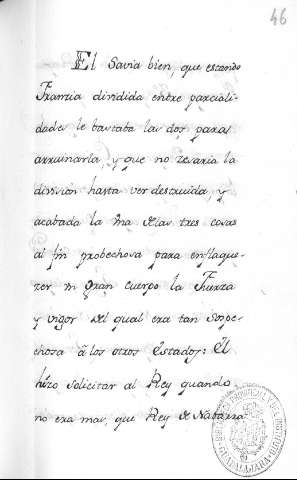 46
El Savia bien, que estando
Franzia dividida entre parciali-
dades le bastaba las dos para
arruinarla, y que no zesaria la
division hasta ver destruida, y
acabada la una de las tres cosas
al fin probechosa para enflaque-
zer un gran cuerpo la Fuerza
y vigor del qual era tan sospe-
chosa á los otros Estados: El
hizo solicitar al Rey quando
no era mas, que Rey de Nabarra
GUADALAJARA